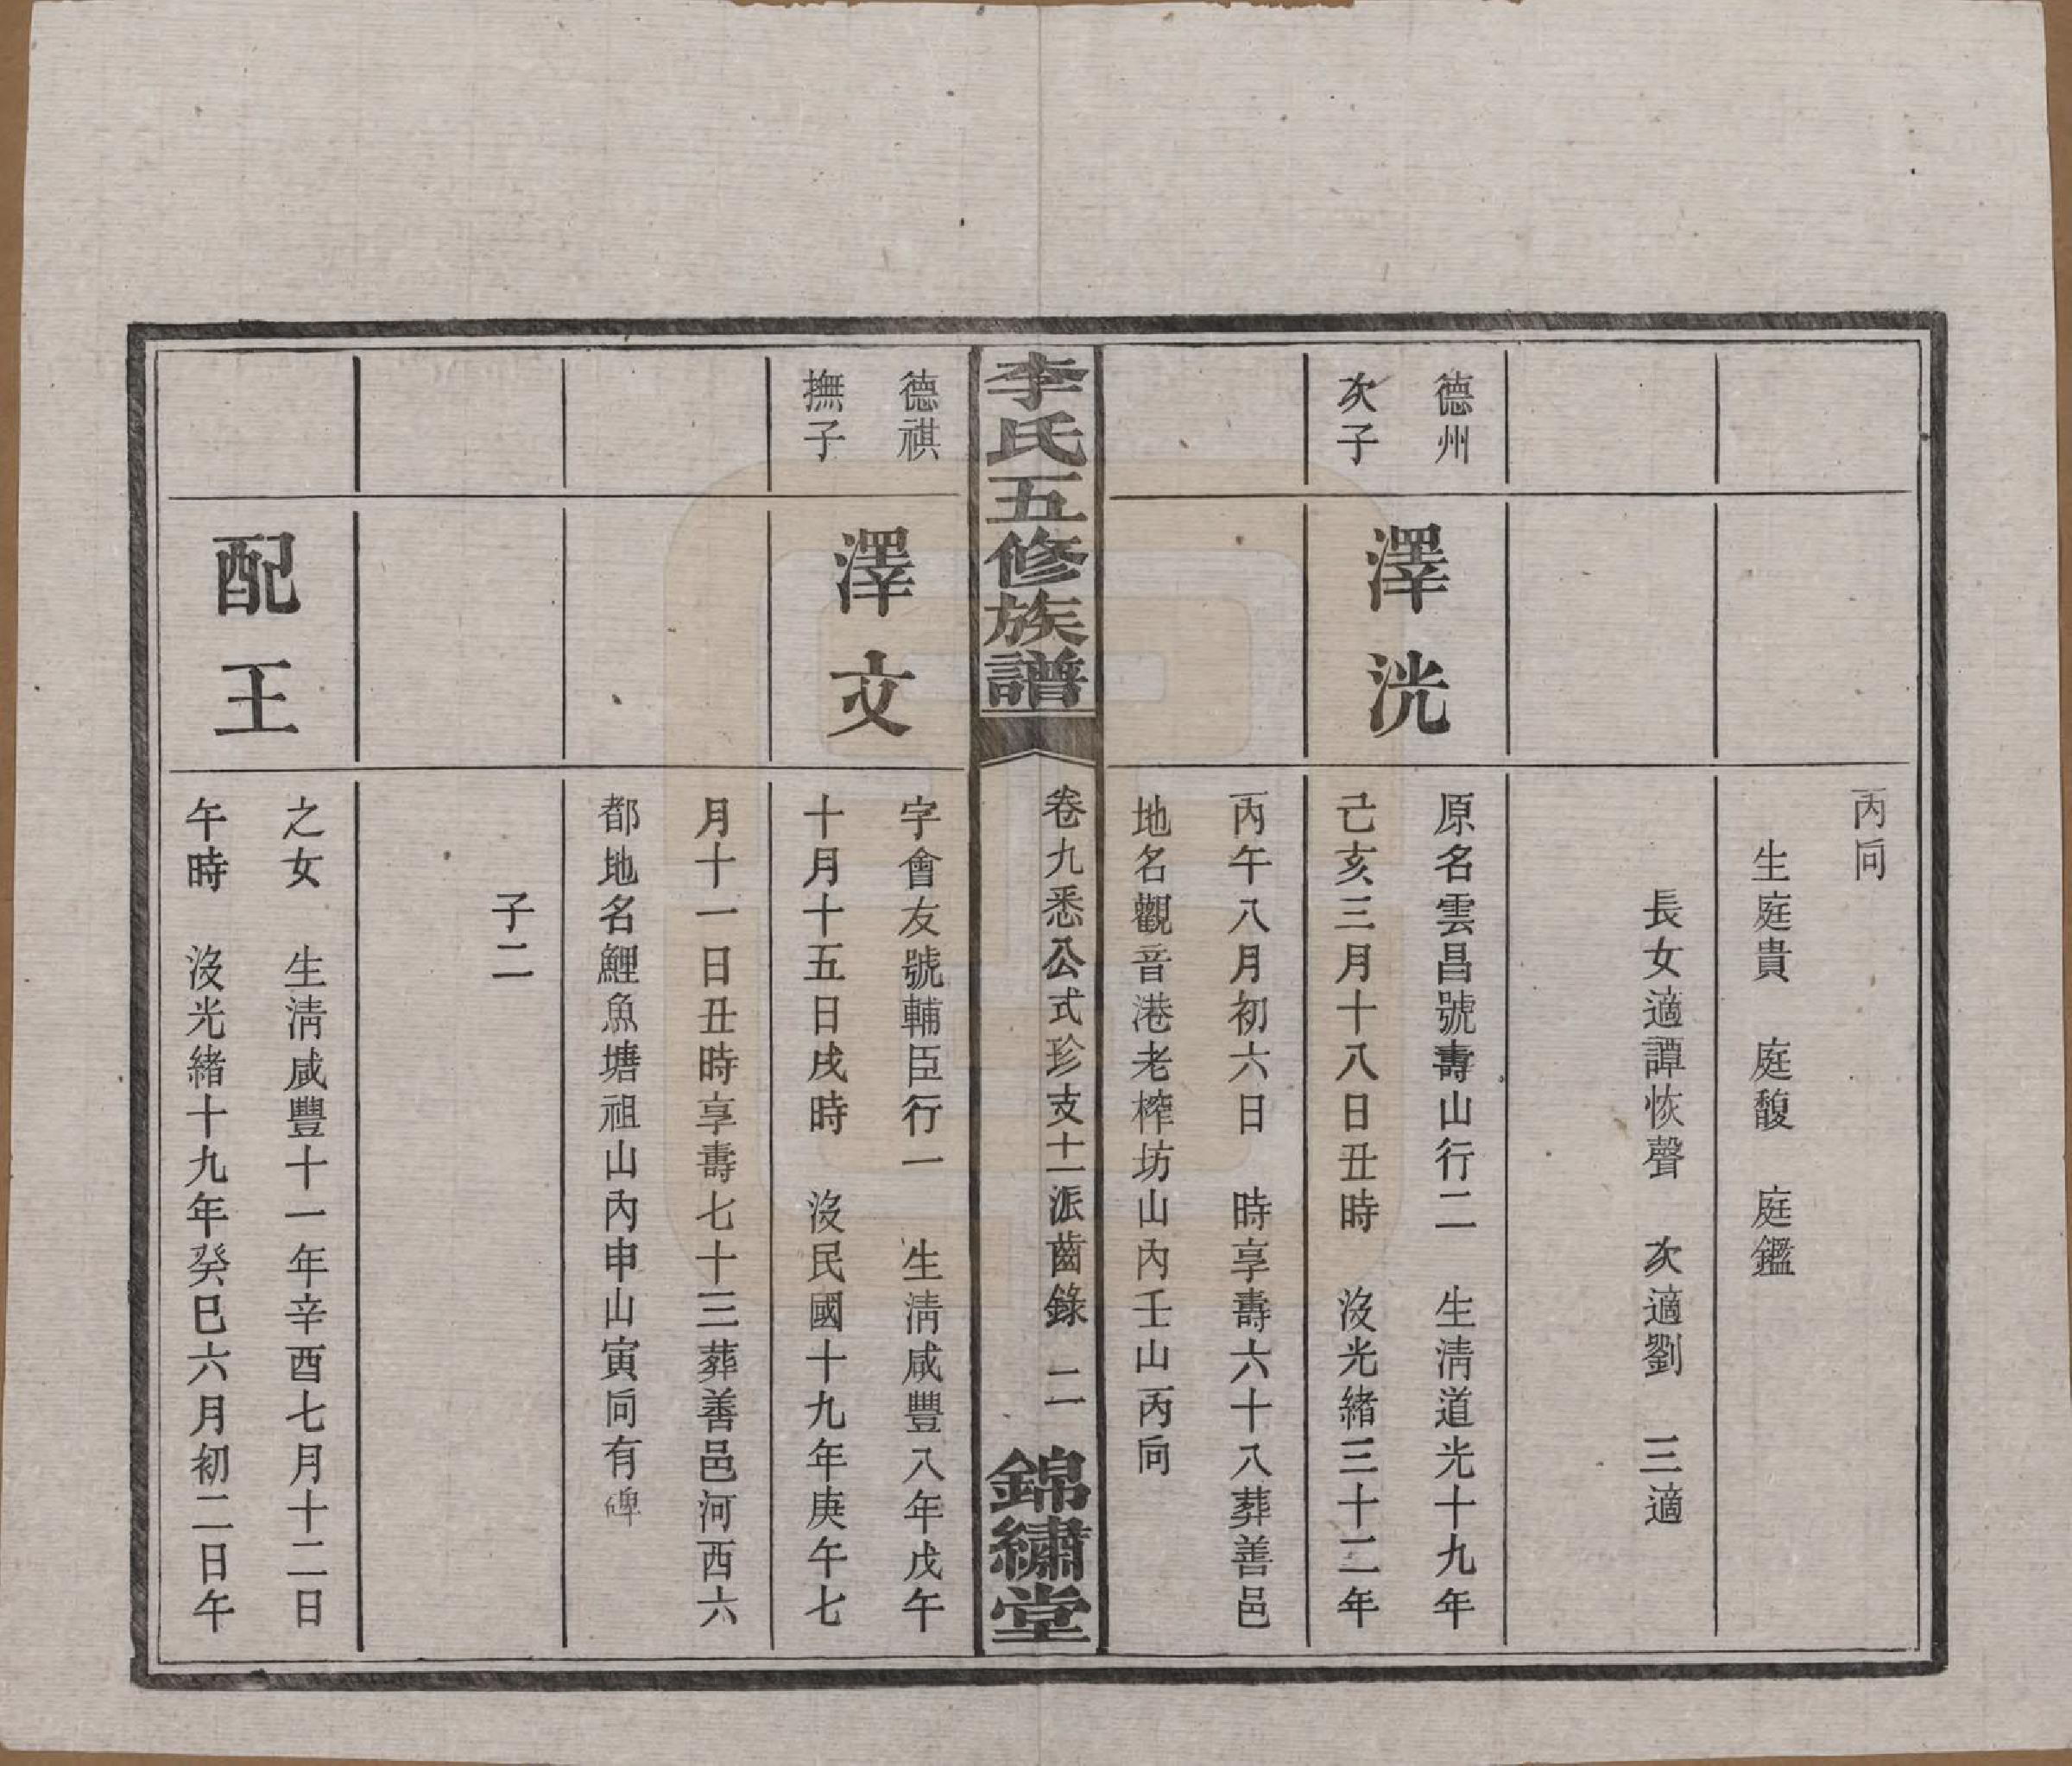 丙向
生庭貴　庭馥　庭鑑
長女適譚恢聲　次適劉　三適
德州
次子
澤洸
原名雲昌號壽山行二　生清道光十九年
己亥三月十八日丑時　沒光緒三十二年
丙午八月初六日　時享壽六十八葬善邑
地名觀音港老榨坊山內壬山丙向
李氏五修族譜
卷九悉公式珍支十一派齒錄　二
錦繡堂
德祺
撫子
澤文
字會友號輔臣行一　生清咸豐八年戊午
十月十五日戌時　沒民國十九年庚午七
月十一日丑時享壽七十三葬善邑河西六
都地名鯉魚塘祖山內申山寅向有碑
子二
配王
之女　生清咸豐十一年辛酉七月十二日
午時　沒光緒十九年癸巳六月初二日午